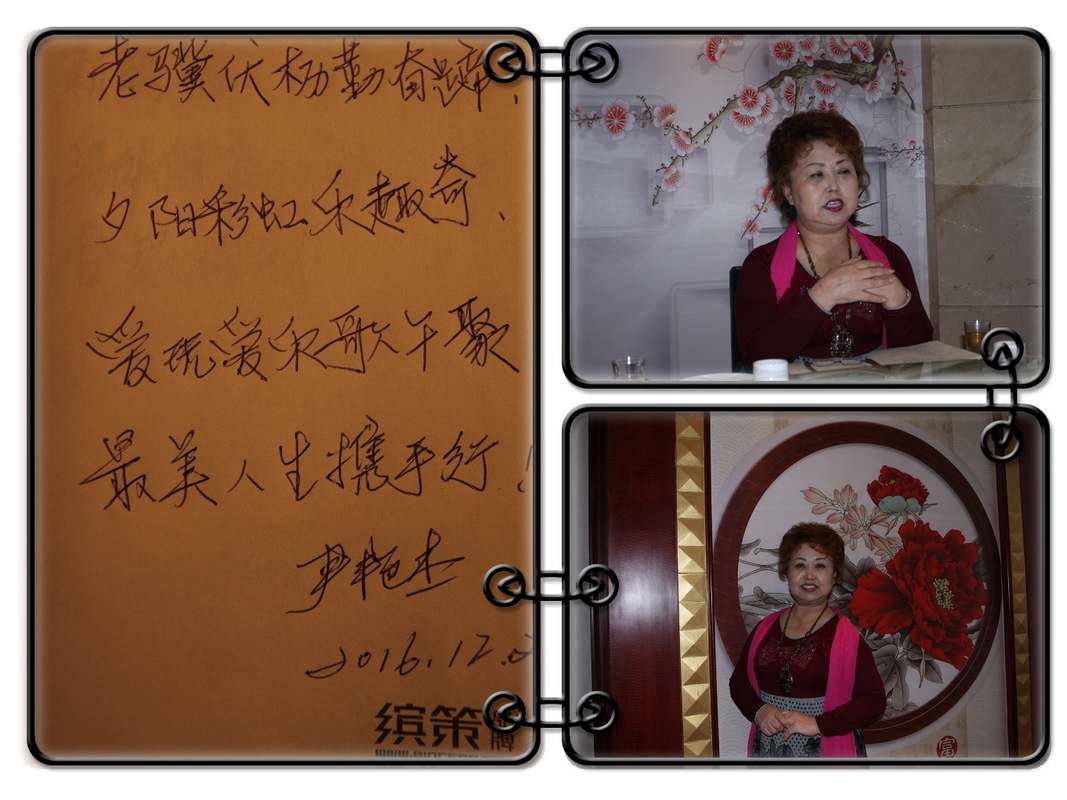 老骥伏枥勤奋蹄、
夕阳彩虹乐趣奇、
爱玩爱乐歌午聚
最美人生携手行!
尹艳杰
2016.12.2
缤策牌
富